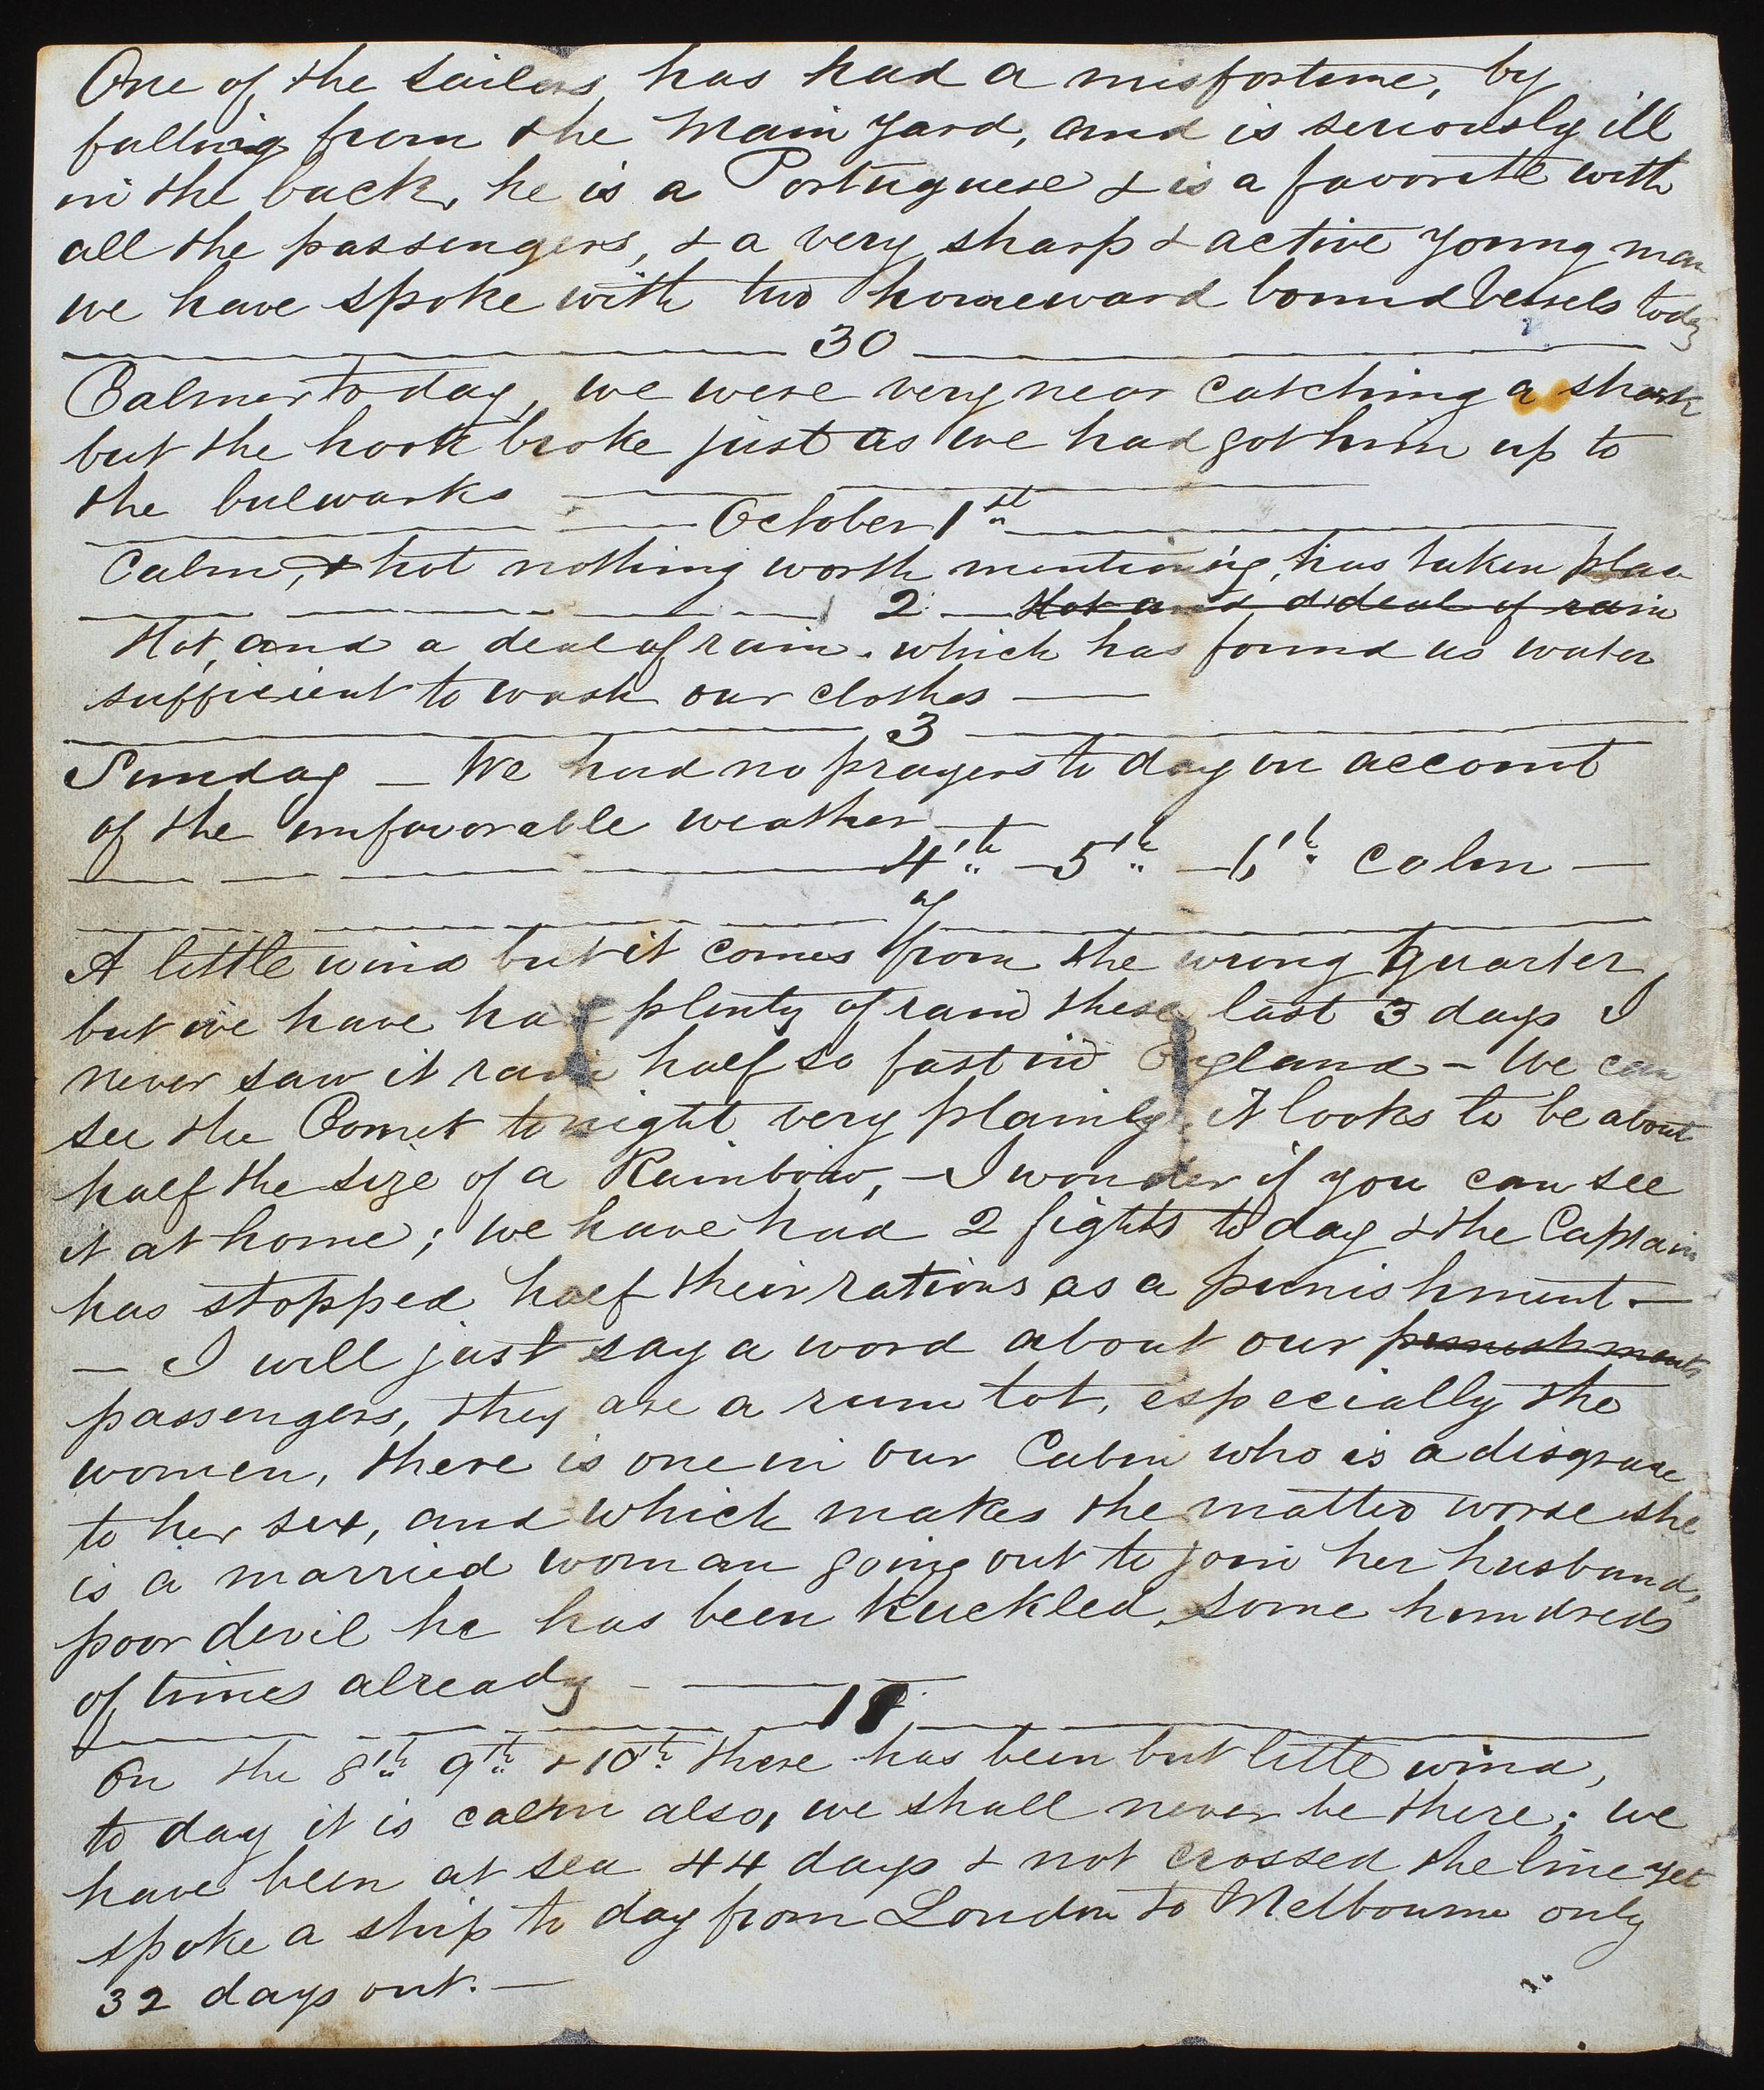 One of the sailors has had a misfortune, by
falling from the Main Yard, and is seriously ill
in the back, he is a Portuguese & is a favorite with
all the passengers, & a very sharp & active young man
we have spoke with two homeward bound vessels today
30
Calmer to day, we were very near catching a shark
but the hook broke just as we had got him up to
the bulwarks
October 1st
Calm, & hot nothing worth mentioning, has taken place
2 Hot and a deal of rain
Hot, and a deal of rain. which has found us water
sufficient to wash our clothes
3
Sunday — We had no prayers to day on account
of the unfavorable weather
4th — 5th — 6th calm —
7
A little wind but it comes from the wrong quarter,
but we have had plenty of rain these last 3 days I
never saw it rain half so fast in England — We can
see the Comet to night very plainly, it looks to be about
half the size of a Rainbow, — I wonder if you can see
it at home; we have had 2 fights to day & the Captain
has stopped half their rations as a punishment. —
— I will just say a word about our punishments
passengers, they are a rum lot, especially the
women, there is one in our Cabin who is a disgrace
to her sex, and which makes the matter worse she
is a married woman going out to join her husband,
poor devil he has been kuckled, some hundreds
of times already —
11
On the 8th 9th & 10th there has been but little wind,
to day it is calm also, we shall never be there; we
have been at sea 44 days & not crossed the line yet
spoke a ship to day from London to Melbourne only
32 days out. —